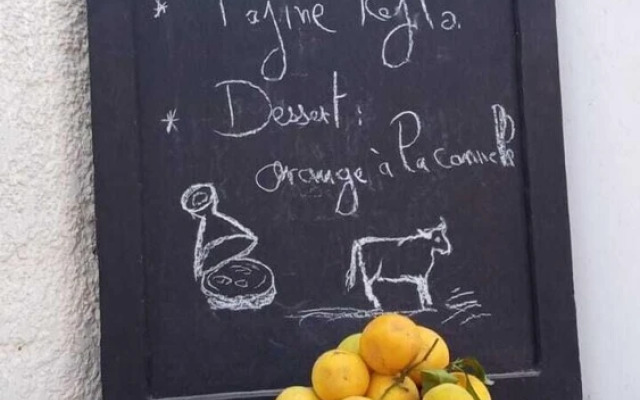 * Tajine Kefta.
* Dessert :
orange à la cannelle